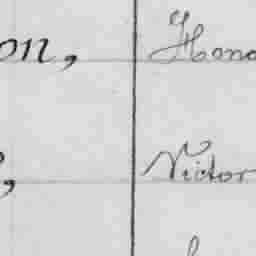 on, Hono
, Victor